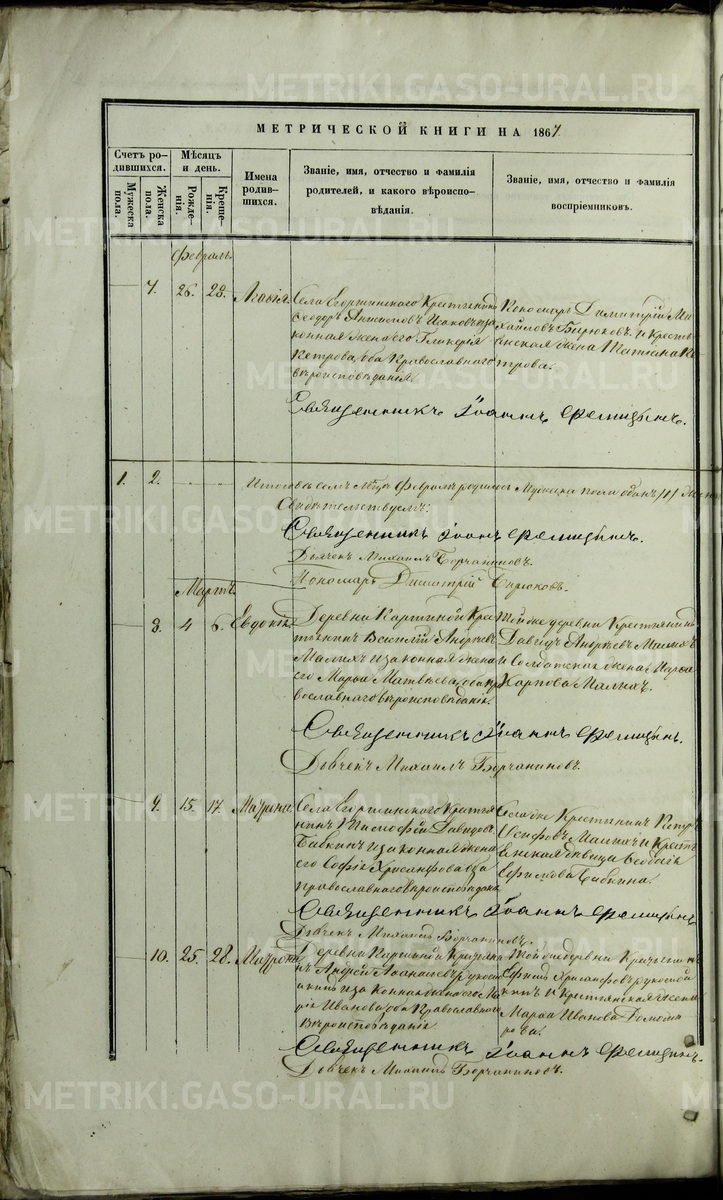 МЕТРИЧЕСКОЙ КНИГИ НА 1867.
Счетъ ро-
дившихся.
Мужеска
пола.
Женска
пола.
Мѣсяцъ
и день.
Рожде-
нія.
Креще-
нія.
Имена
родив-
шихся.
Званіе, имя, отчество и фамилія
родителей, и какого вѣроиспо-
вѣданія.
Званіе, имя, отчество и фамилія
воспріемниковъ.
Февраль
7. 26. 28. Агафія.
Села Егоршинскаго Крестьянинъ
Ѳеодоръ Исаковъ и за
конная жена его Гликерія
Петрова, оба Православнаго
вѣроисповѣданія.
Пономарь Димитрій Ми
хайловъ Бирюковъ и кресть
янская жена Татіана Пе
трова.
Священникъ Іоаннъ
1. 2.
Итого въ семъ мѣсяцѣ Февралѣ родилось Мужеска пола одинъ /1/
Свидѣтельствуемъ:
Священникъ Іоаннъ
Дьячекъ Михаилъ Борчаниновъ.
Пономарь Димитрій Бирюковъ.
Мартъ
8. 4 6. Евдокія
Деревни Паршиной Кре
стьянинъ Василій Андреевъ
Малыхъ и законная жена
его Марѳа Матвѣева, оба пра
вославнаго вѣроисповѣданія.
Той же деревни Крестьянинъ
Давидъ Андреевъ Малыхъ
и солдатская жена Марѳа
Карпова Малыхъ.
Священникъ Іоаннъ
Дьячекъ Михаилъ Борчаниновъ.
9. 15. 17. Матрона
Села Егоршинскаго Крестья
нинъ Тимоѳей Давидовъ
Бабкинъ и законная жена
его Софія Хрисанфова оба
православнаго вѣроисповѣданія
Села того же Крестьянинъ Петръ
Осифовъ Малыхъ и Кресть
янская дѣвица
Ефимова Бабкина.
Священникъ Іоаннъ
Дьячекъ Михаилъ Борчаниновъ.
10. 25. 28. Матрона
Деревни Паршиной Крестьяни
нъ Андрей Аѳанасьевъ Рукосу
екинъ и законная жена его Ма
рія Иванова, оба Православнаго
Вѣроисповѣданія.
Той же деревни Крестьянинъ
Хрисанфовъ
и Крестьянская жена
Марѳа Иванова
Священникъ Іоаннъ
Дьячекъ Михаилъ Борчаниновъ.
METRIKI.GASO-URAL.RU